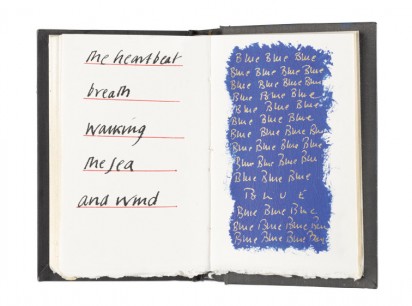 the heartbeat
breath
walking
the sea
and wind
Blue Blue Blue
Blue Blue Blue Blue
Blue Blue Blue Blue
Blue Blue Blue Blue
Blue Blue Blue Blue
Blue Blue Blue
Blue Blue Blue Blue
Blue Blue Blue Blue
Blue Blue Blue Blue
Blue Blue Blue Blue
B L U E
Blue Blue Blue
Blue Blue Blue Blue
Blue Blue Blue Blue